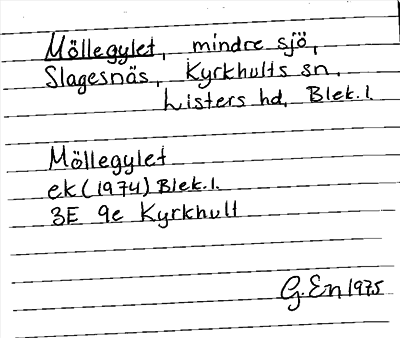 Möllegylet, mindre sjö,
Slagesnäs, Kyrkhults sn,
Listers hd, Blek.l.
Möllegylet
ek (1974) Blek.l.
3E 9e Kyrkhult
G. En 1975